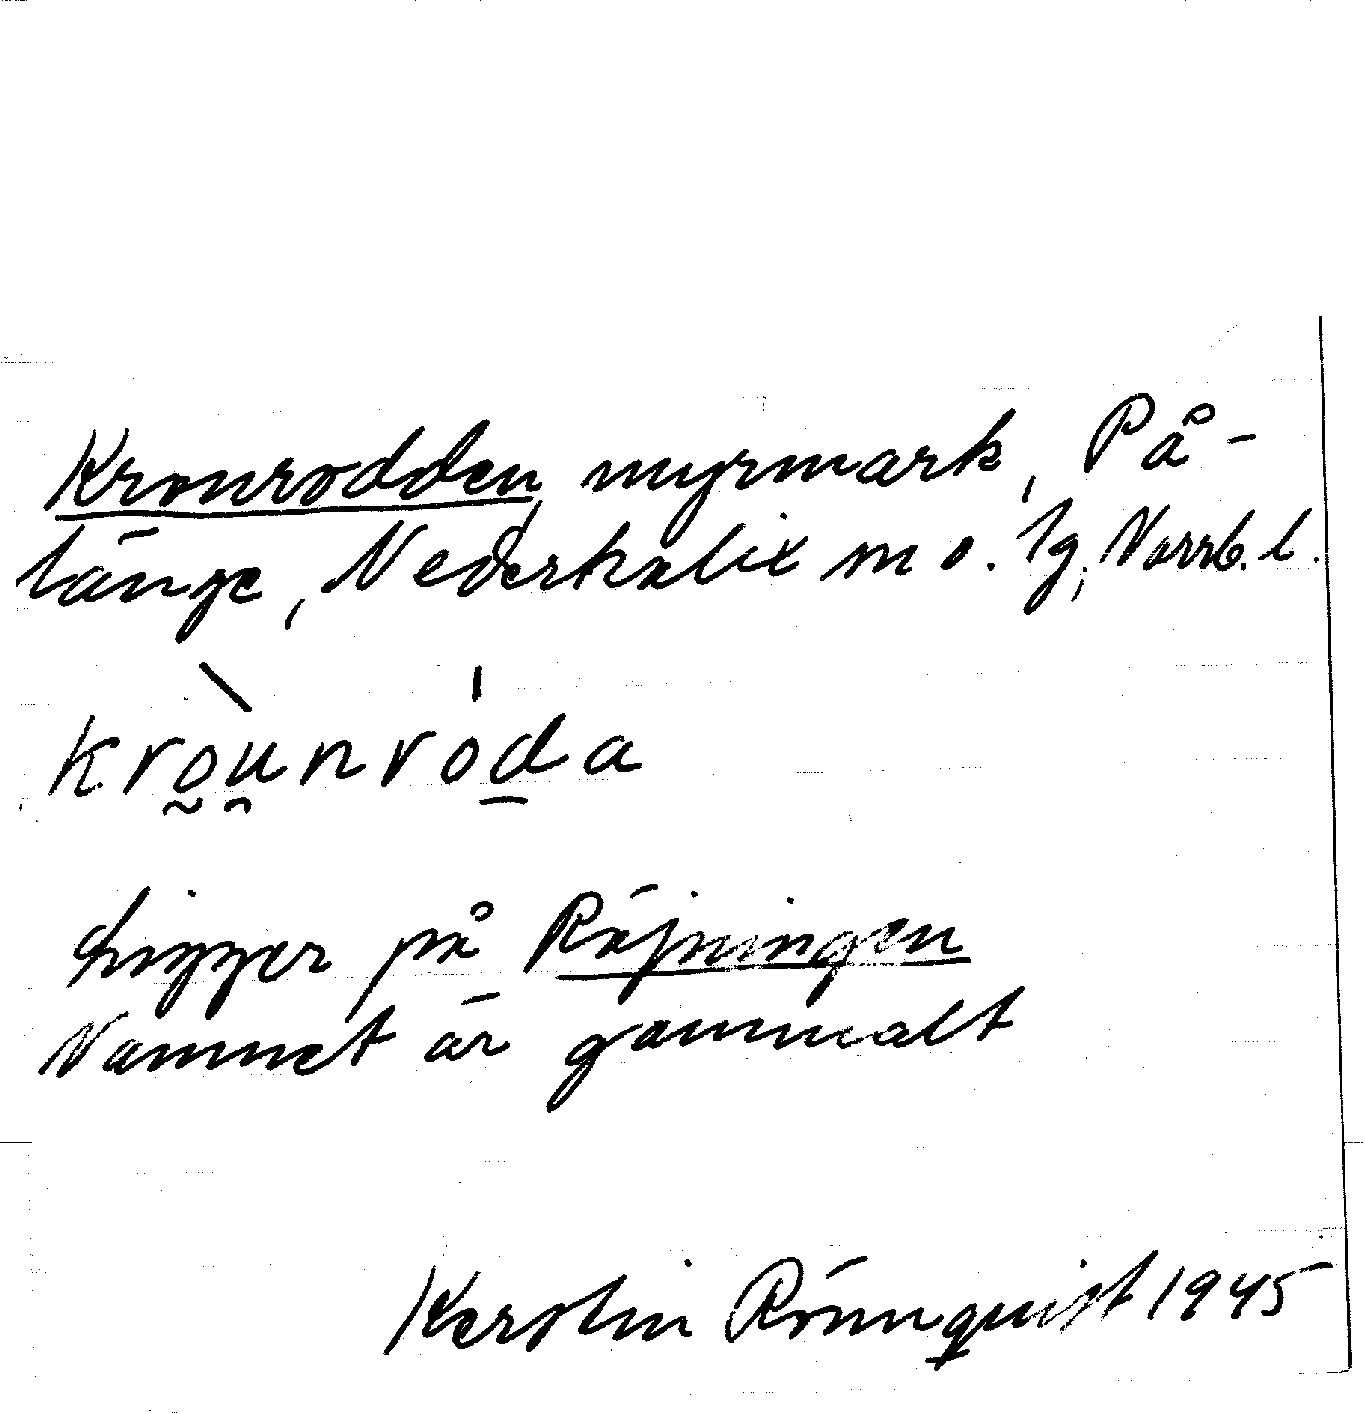 Kronrodden, myrmark, På-
länge, Nederkalix sn o. tg, Norrb. l.
kròu̯nróḏa
Ligger på Röjningen
Namnet är gammalt
Kerstin Rönnquist 1945